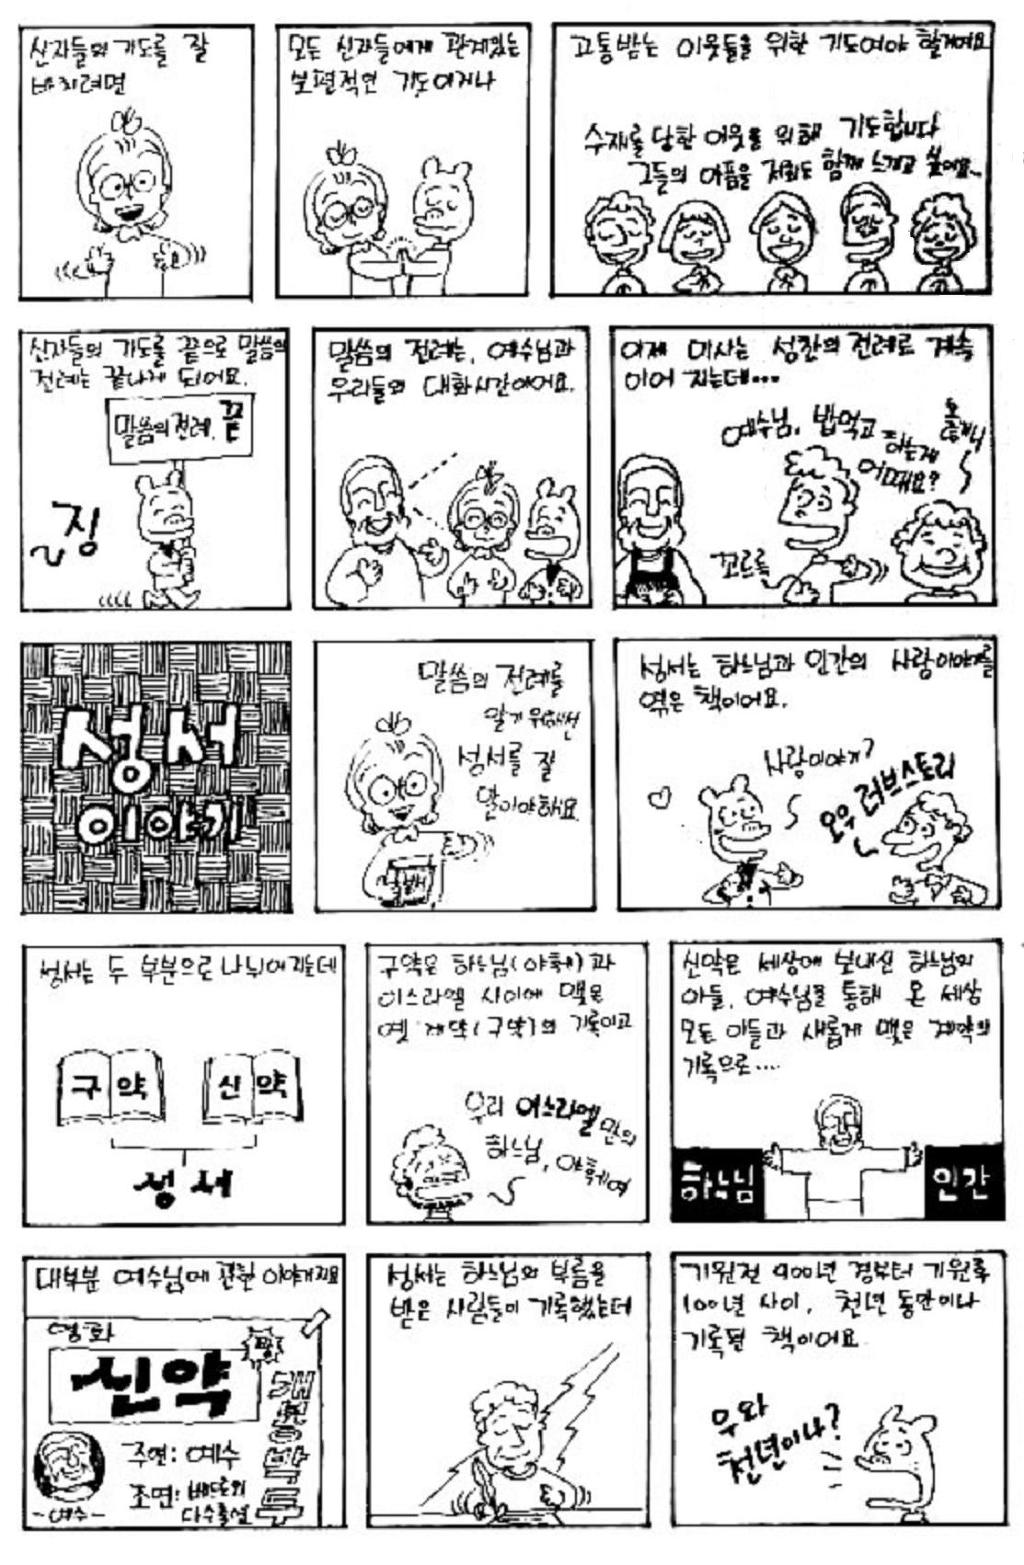 신자들의 기도를 잘
바치려면
모든 신자들에게 관계있는
보편적인 기도이거나
고통받는 이웃들을 위한 기도여야 할거예요
수재를 당한 이웃을 위해 기도합니다
그들의 아픔을 저희도 함께 느끼고 싶어요..
신자들의 기도를 끝으로 말씀의
전례는 끝나게 되어요.
말씀의 전례, 끝
징
말씀의 전례는, 예수님과
우리들의 대화시간이어요.
이제 미사는 성찬의 전례로 계속
이어 지는데...
예수님, 밥먹고
하는게
어때요?
꼬르륵
성서
이야기
말씀의 전례를
알기 위해선
성서를 잘
알아야해요
성서는 하느님과 인간의 사랑이야기를
엮은 책이어요.
사랑이야기?
오우 러브스토리
성서는 두 부분으로 나뉘어지는데
구약
신약
성서
구약은 하느님(야훼)과
이스라엘 사이에 맺은
옛 계약(구약)의 기록이고
우리 이스라엘만의
하느님, 야훼여
신약은 세상에 보내신 하느님의
아들, 예수님을 통해 온 세상
모든 이들과 새롭게 맺은 계약의
기록으로....
하느님
인간
대부분 예수님에 관한 이야기지요
영화
신약
개봉박두
주연: 예수
조연: 베드로외
다수출연
-예수-
성서는 하느님의 부름을
받은 사람들이 기록했는데
기원전 900년 경부터 기원후
100년 사이, 천년 동안이나
기록된 책이어요
우와
천년이나?